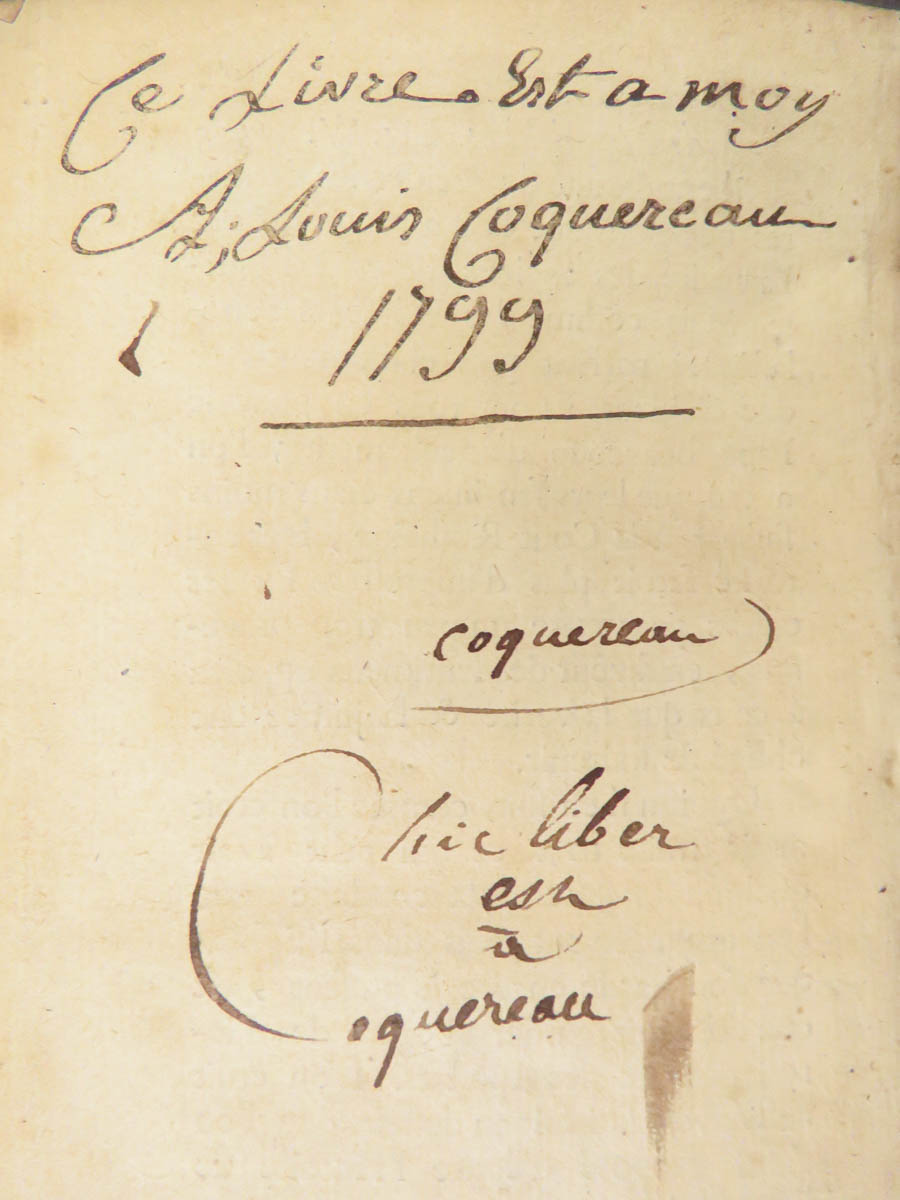 Ce Livre Est a moy
A; Louis Coquereau
1799
coquereau
hic liber
est
à
Coquereau